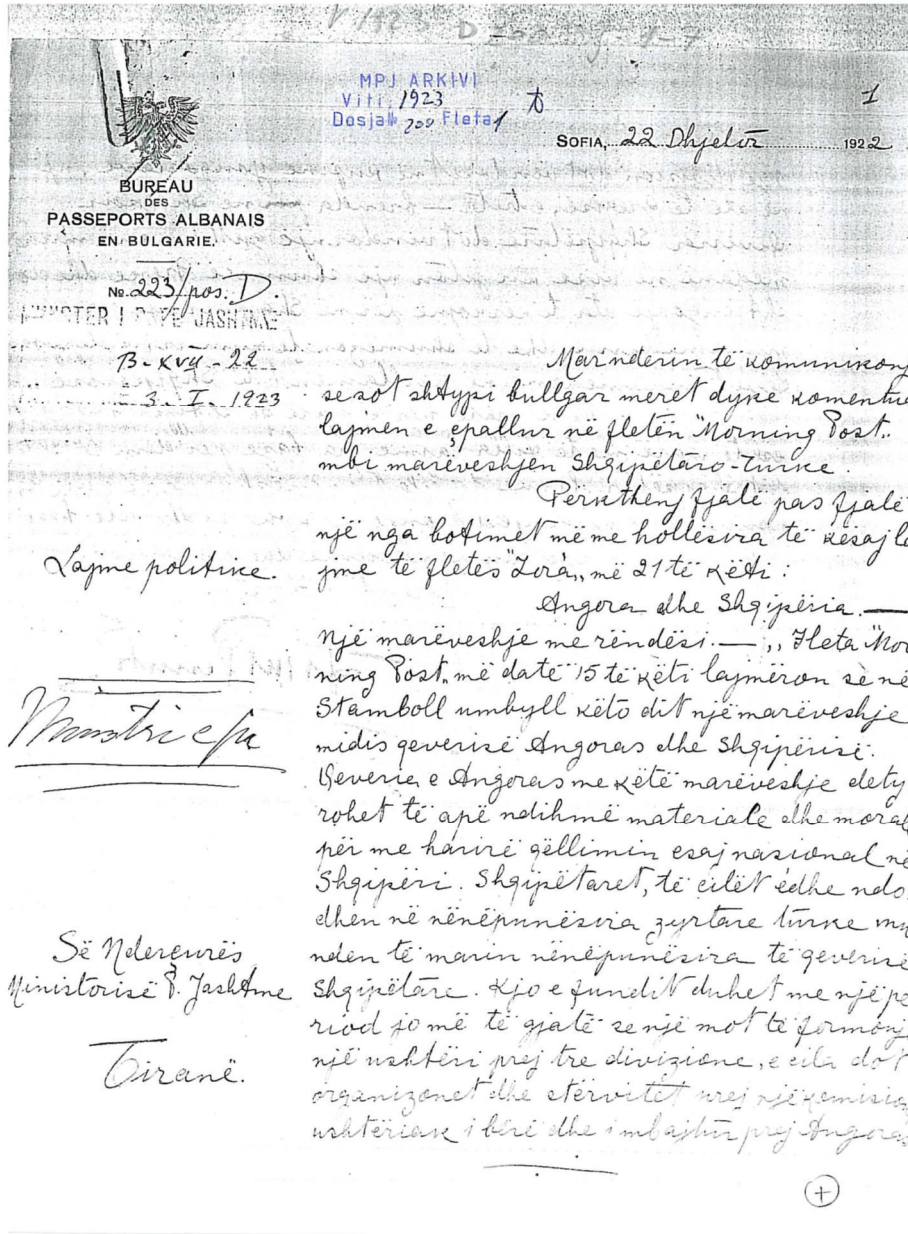 V 1923 D-200
MPJ ARKIVI
Viti, 1923
Dosja № 200 Fleta 1
1
SOFIA, 22 Dhjetor 1922
BUREAU
DES
PASSEPORTS ALBANAIS
EN BULGARIE.
No. 223/pos. D.
B-XVII-22
3. I. 1923
Mar nderin të komunikonj
se sot shtypi bullgar meret dyke komentue
lajmën e çpallur në fletën "Morning Post„
mbi marëveshjen Shqipëtaro-Turke.
Perkthenj fjalë pas fjalë
një nga botimet më me hollësira të kësaj la
jme të fletës "Zora„ më 21 të këti:
Lajme politike.
Angora dhe Shqipëria. —
Një marëveshje me rëndësi. — „Fleta "Mor
ning Post„ më datë 15 të këti lajmëron se në
Stamboll umbyll këto dit një marëveshje
midis qeverisë Angoras dhe Shqipërisë.
Qeveria e Angoras me këtë marëveshje dety
rohet të apë ndihmë materiale dhe morale
për me harirë qëllimin esaj nasional në
Shqipëri. Shqipëtaret, të cilët edhe ndo
dhen në nënëpunësira zyrtare turke mu
nden të marin nënëpunësira të qeverisë
Shqipëtare. Kjo e fundit duhet me një pe
riod jo më të gjatë se një mot të formonj
një ushtëri prej tre divizione, e cila dot
organizonet dhe stërvitet prej një komision
ushtëriak i bërë dhe i mbajtur prej Angoras
Së Nderçurës
Ministorisë P. Jashtme
Tiranë.
+